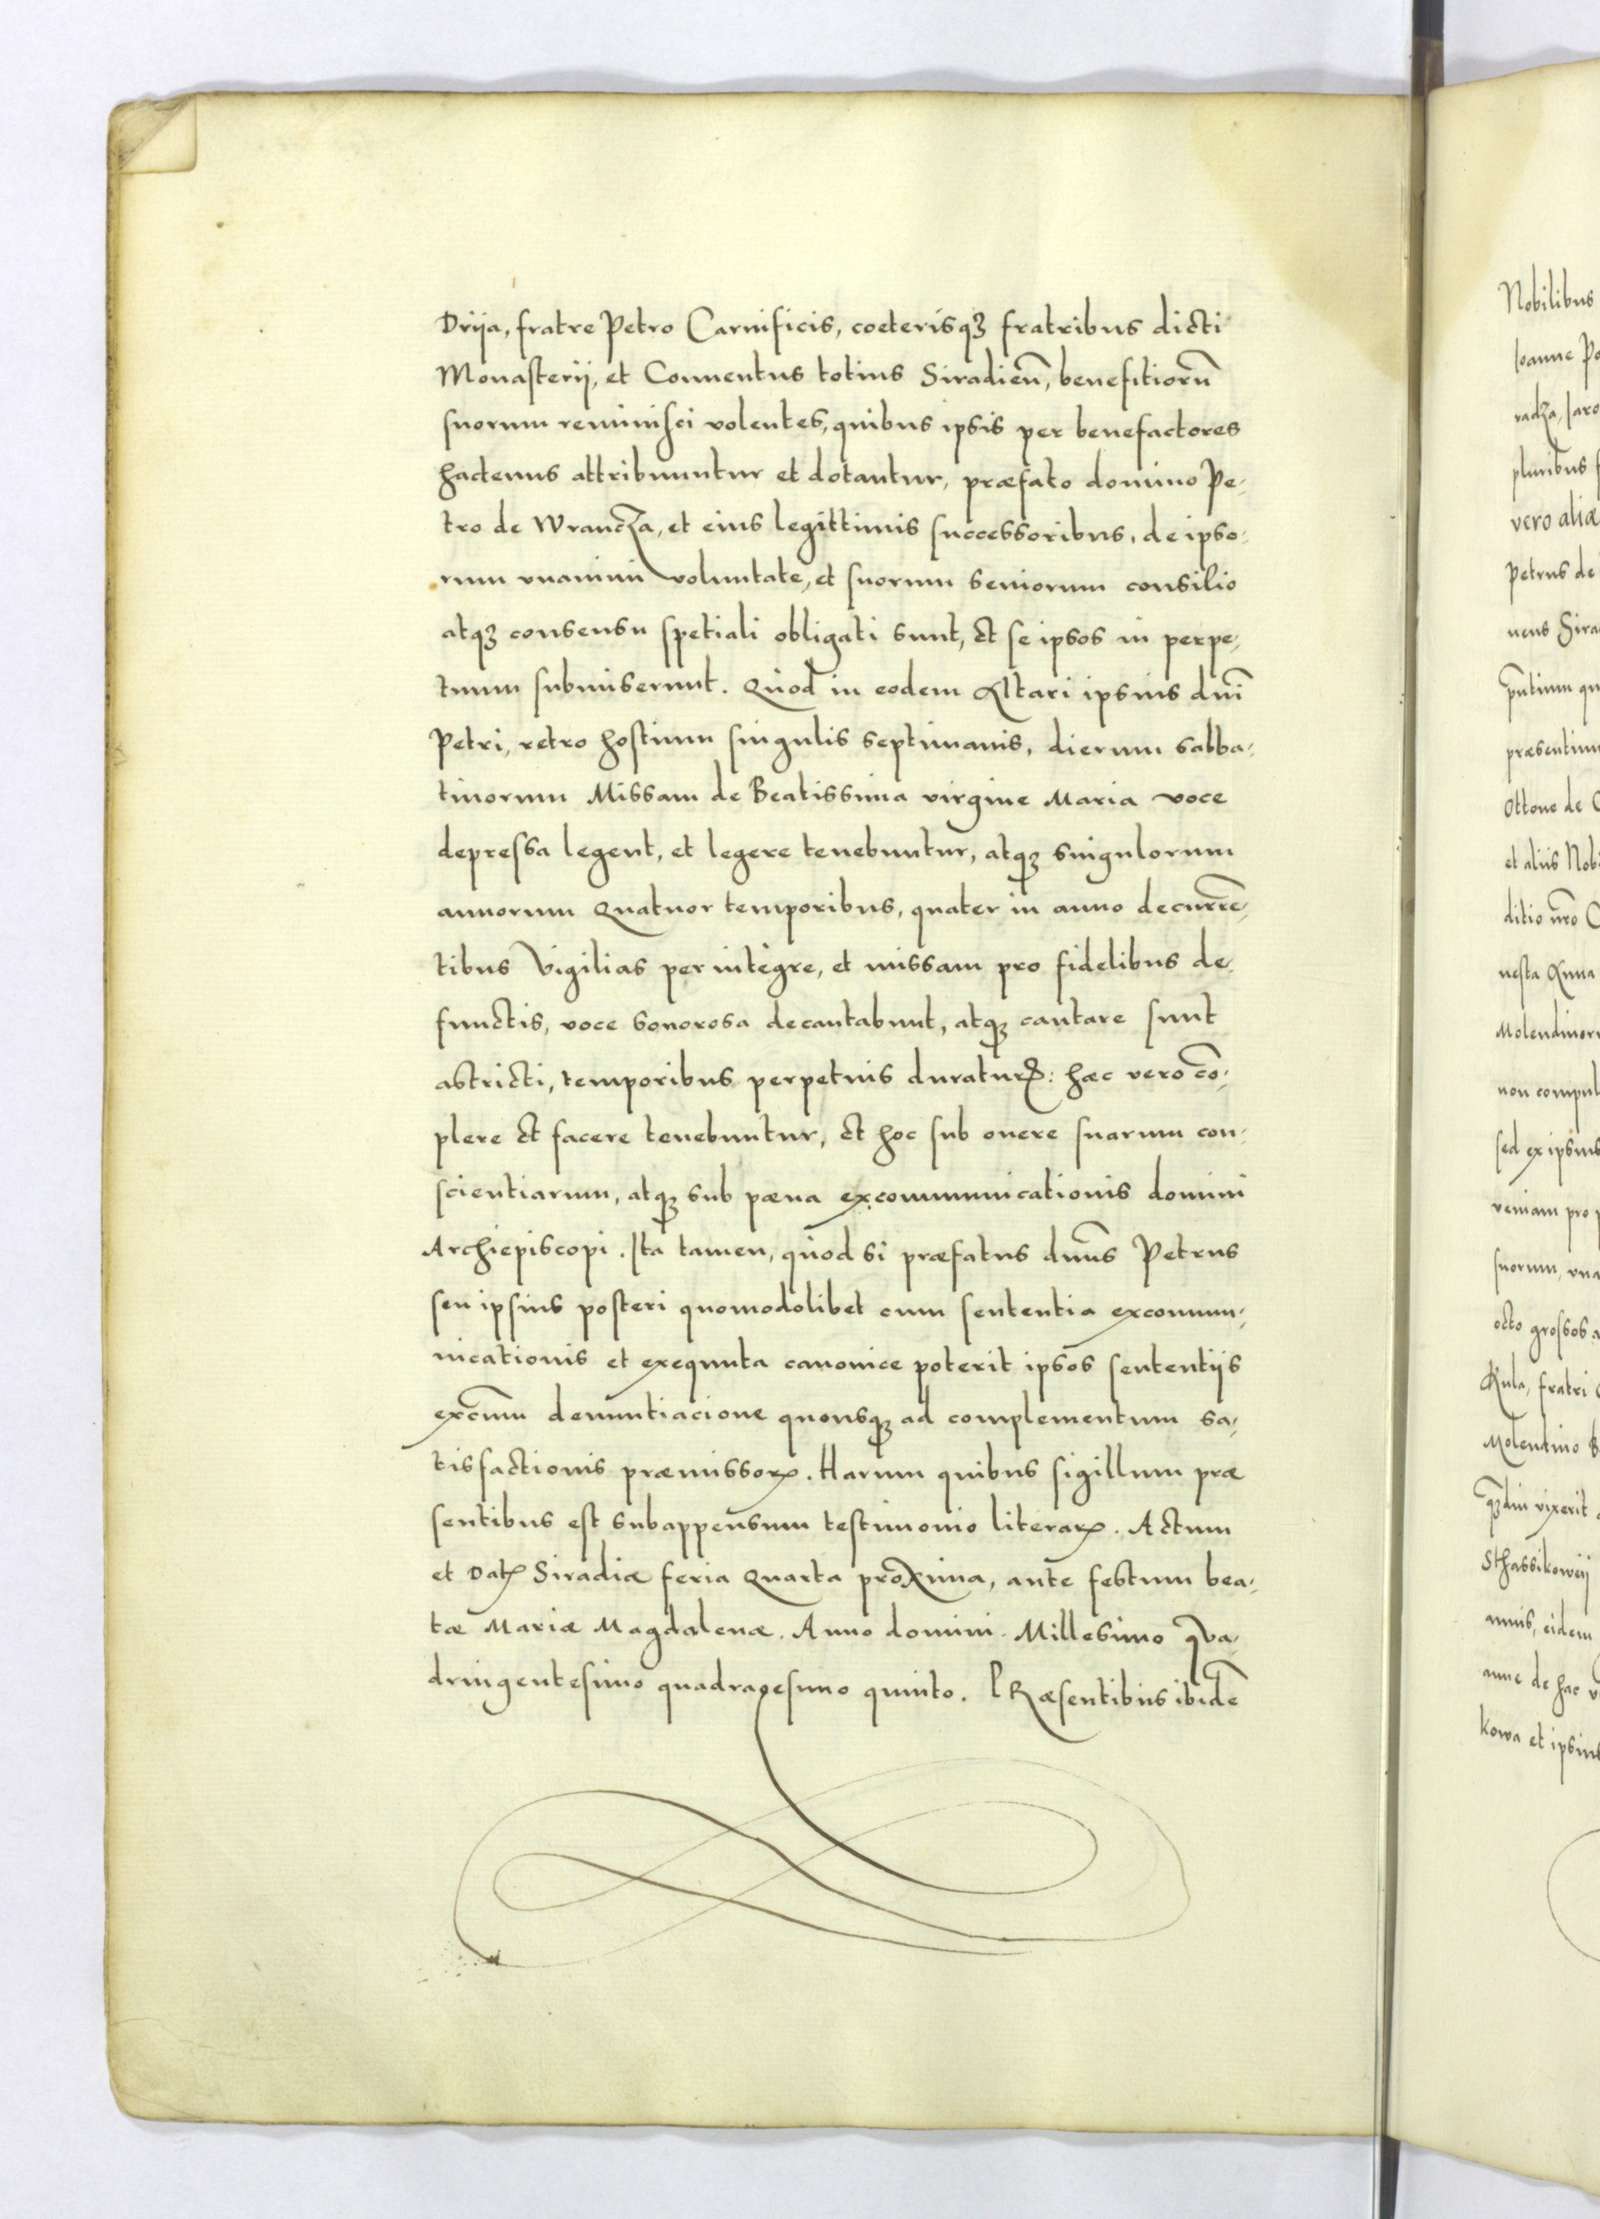 Drija, fratre Petro Carnificis, coeterisqȝ fratribus dicti
Monasterij, et Conuentus totius Siradień, benefitiorū
suorum reminisci volentes, quibus ipsis per benefactores
hactenus attribuuntur et dotantur, præfato domino Pe-
tro de Wrancza, et eius legittimis successoribus, de ipso-
rum vnanimi voluntate, et suorum seniorum consilio
atqȝ consensu spetiali obligati sunt, et se ipsos in perpe-
tuum submiserunt. Quod in eodem Altari ipsius dnī
Petri, retro hostium singulis septimanis, dierum sabba-
tinorum Missam de Beatissima virgine Maria voce
depressa legent, et legere tenebuntur, atqȝ singulorum
annorum Quatuor temporibus, quater in anno decurrē-
tibus Vigilias perintègre, et missam pro fidelibus de-
functis, voce sonorosa decantabunt, atqȝ cantare sunt
astricti, temporibus perpetuis duraturꝭ: hæc vero cō-
plere et facere tenebuntur, et hoc sub onere suarum con-
scientiarum, atqȝ sub pæna excommunicationis domini
Archiepiscopi. Ita tamen, quòd si præfatus dnūs Petrus
seu ipsius posteri quomodolibet cum sententia excommu-
nicationis et exequuta canonice poterit ipsos sententijs
excōmu denuntiacione quousqȝ ad complementum sa-
tisfactionis præmissorꝝ. Harum quibus sigillum præ
sentibus est subappensum testimonio literarꝝ. Actum
et Datꝭ Siradiæ feria Quarta proxima, ante festum bea-
tæ Mariæ Magdalenæ. Anno domini. Millesimo qva-
dringentesimo quadragesimo quinto. PRæsentibus ibidē
Nobilibus
Ioanne Po
radza, Jaro
pluribus
vero aliæ
Petrus de
nens Sira
pn̄tium qu
præsentium
Ottone de
et aliis Nobi
ditio nr̄o
nesta Anna
Molendinor
non compul
sed ex ipsius
veniam pro
suorum, vna
octo grossos
Kula, fratri
Molendino
vixerit
Sthassikowij
annis, eidem
anne de hac
kowa et ipsius